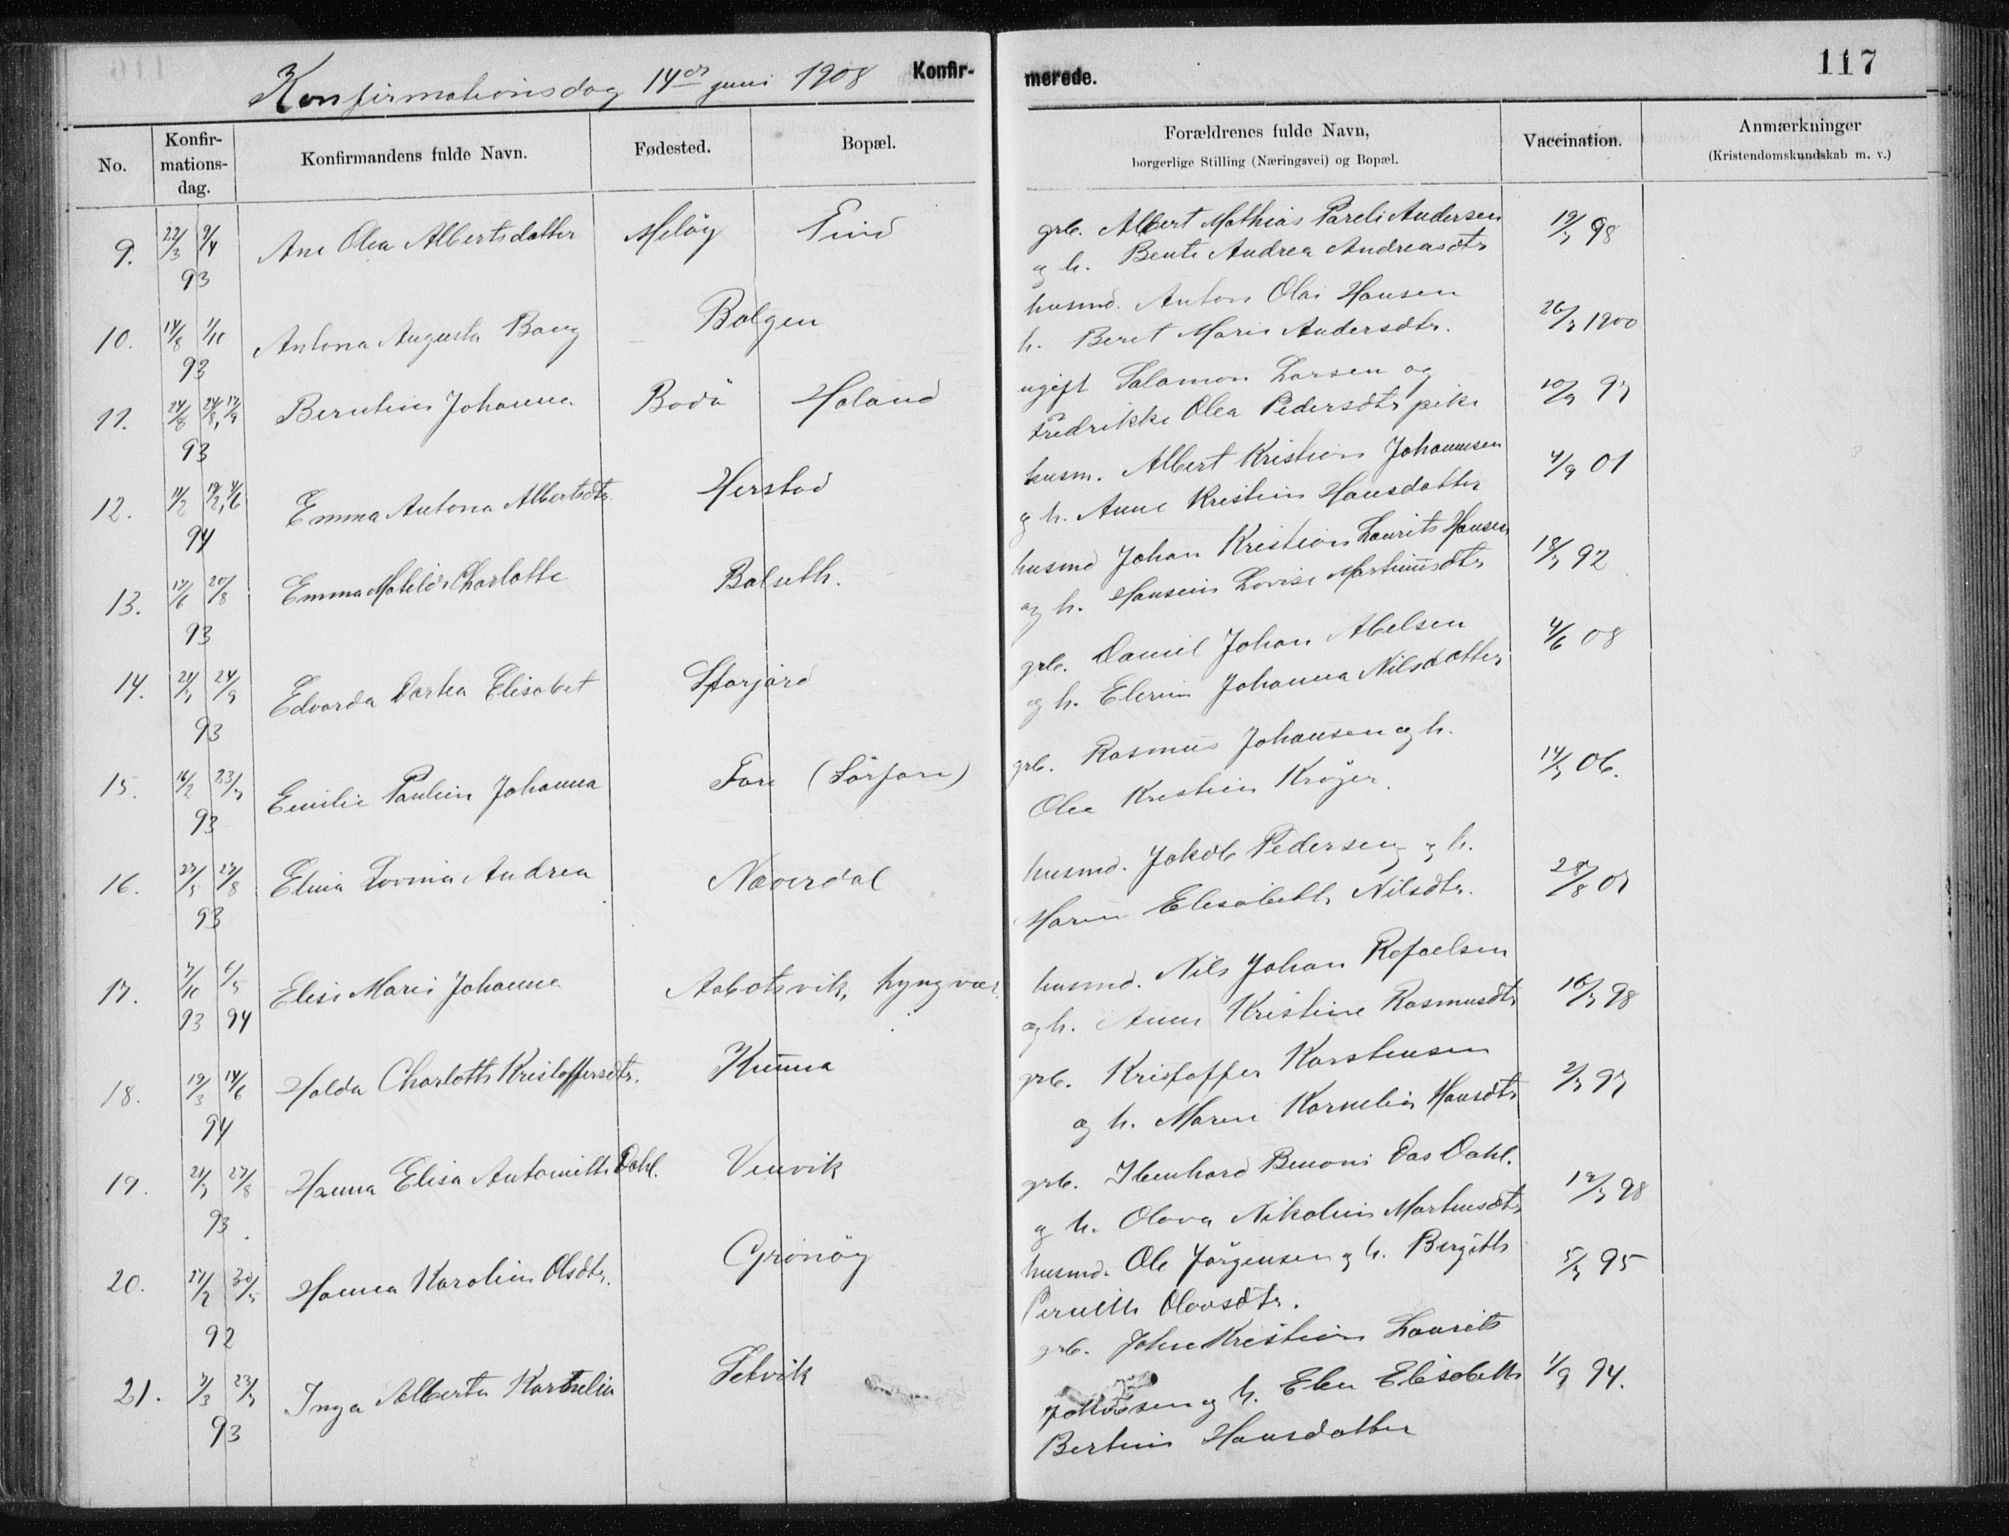 Konfirmationsdag 14de juni 1908 Konfir-
merede.
117
No.
Konfir-
mations-
dag.
Konfirmandens fulde Navn.
Fødested.
Bopæl.
Forældrenes fulde Navn,
borgerlige Stilling (Næringsvei) og Bopæl.
Vaccination.
Anmærkninger
(Kristendomskundskab m. v.)
9. 22/3 9/4 Ane Olea Albertsdatter Meløy
grb. Albert Mathias Pareli Andersen 19/7 98
og h. Bente Andrea Andreasdtr
93
10. 14/8 1/10 Antona Augusta Bang Bolgen
husmd. Anton Olai Hansen 26/7 1900
h. Beret Marie Andersdtr.
93
11. 24/8 24/8, 17/9 Berntine Johanna Bodø Høland
ugift Salamon Larsen og 10/7 97
Fredrikke Olea Pedersdtr pike
93
12. 11/2 19/2, 4/6 Emma Antona Albertsdtr. Herstad
husm. Albert Kristian Johannsen 4/9 01
og h. Anne Kristine Hansdatter
94
13. 17/6 20/8 Emma Matilde Charlotte Bolseth.
husmd Johan Kristian Laurits Hansen 18/7 92
og h. Hansine Lovise Martinusdtr
93
14. 24/7 24/9 Edvarda Dortea Elisabet Storjord
grb. Daniel Johan Abelsen 4/6 08
og h. Elerine Johanna Nilsdatter
93
15. 16/2 23/7 Emilie Pauline Johanna Fore (Sörfore)
grb. Rasmus Johansen og h. 14/7 06.
Olea Kristine Krøyer.
93
16. 27/5 27/8 Elina Lovina Andrea Næverdal
husmd. Jakob Pedersen og h. 28/8 07
Maren Elisabeth Nilsdtr.
93
17. 7/10 6/5 Elise Marie Johanna Aabotsvik, Lyngvær.
husmd. Nils Johan Rafaelsen 16/7 98
og h. Anna Kristine Rasmusdtr
93 94
18. 19/3 14/6 Halda Charlotte Kristoffersdtr. Kunna
grb. Kristoffer Karstensen 2/7 97
og h. Maren Kornelia Hansdtr
94
19. 24/7 27/8 Hanna Elisa Antonitte Dahl. Venvik
grb. Ibenhard Benoni Das Dahl. 12/7 98
og h. Olava Nikoline Martinusdtr
93
20. 27/2 30/5 Hanna Karoline Olsdtr. Grønøy
husmd. Ole Jørgensen og h. Birgitte 5/7 95
Pernille Olavsdtr.
92
21. 7/3 23/7 Inga Alberta Kornelia Selvik
grb. Johan Kristian Laurits
Jakobsen og h. Elen Elisabeth 1/9 94.
Bertine Hansdatter
93